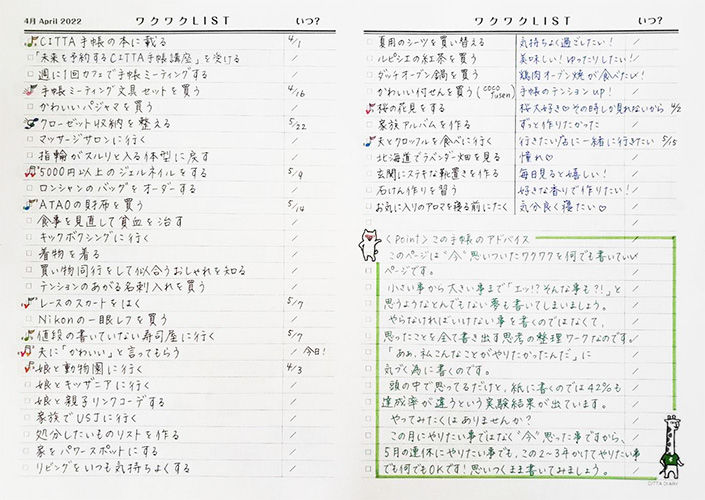 4月 April 2022 ワクワクLIST いつ?
CITTA手帳の本に載る 4/1
「未来を予約するCITTA手帳講座」を受ける /
週に1回カフェで手帳ミーティングする /
手帳ミーティング文具セットを買う 4/16
かわいいパジャマを買う /
クローゼット収納を整える 5/22
マッサージサロンに行く /
指輪がスルリと入る体型に戻す /
5000円以上のジェルネイルをする 5/9
ロンシャンのバッグをオーダーする /
ATAOの財布を買う 5/14
食事を見直して貧血を治す /
キックボクシングに行く /
着物を着る /
買い物同行をして似合うおしゃれを知る /
テンションのあがる名刺入れを買う /
レースのスカートをはく 5/7
Nikonの一眼レフを買う /
値段の書いていない寿司屋に行く 5/7
夫に「かわいい」と言ってもらう / 今日!
娘と動物園に行く 4/3
娘とキッザニアに行く /
娘と親子リンクコーデする /
家族でUSJに行く /
処分したいものリストを作る /
家をパワースポットにする /
リビングをいつも気持ちよくする /
ワクワクLIST いつ?
夏用のシーツを買い替える 気持ちよく過ごしたい! /
ルピシエの紅茶を買う 美味しい!ゆったりしたい! /
ダッチオーブン鍋を買う 鶏肉オーブン焼が食べたい! /
かわいい付せんを買う(coco fusen) 手帳のテンションup! /
桜の花見をする 桜大好き♡その時しか見れないから 4/2
家族アルバムを作る ずっと作りたかった /
夫とクロッフルを食べに行く 行きたい店に一緒に行きたい 5/15
北海道でラベンダー畑を見る 憧れ♡ /
玄関にステキな靴置きを作る 毎日見ると嬉しい! /
石けん作りを習う 好きな香りで作りたい! /
お気に入りのアロマを寝る前にたく 気分良く寝たい♡ /
〈Point〉この手帳のアドバイス
このページは"今"思いついたワクワクを何でも書いていい
ページです。
小さい事から大きい事まで「エッ!?そんな事も?!」と
思うようなとんでもない夢も書いてしまいましょう。
やらなければいけない事を書くのではなくて、
思ったことを全て書き出す思考の整理ワークなのです。
「あぁ、私こんなことがやりたかったんだ」に
気づく為に書くのです。
頭の中で思ってるだけと、紙に書くのでは42%も
達成率が違うという実験結果が出ています。
やってみたくはありませんか?
この月にやりたい事ではなく"今"思った事ですから、
5月の連休にやりたい事でも、この2~3年かけてやりたい事
でも何でもOKです!思いつくまま書いてみましょう。
CITTA DIARY